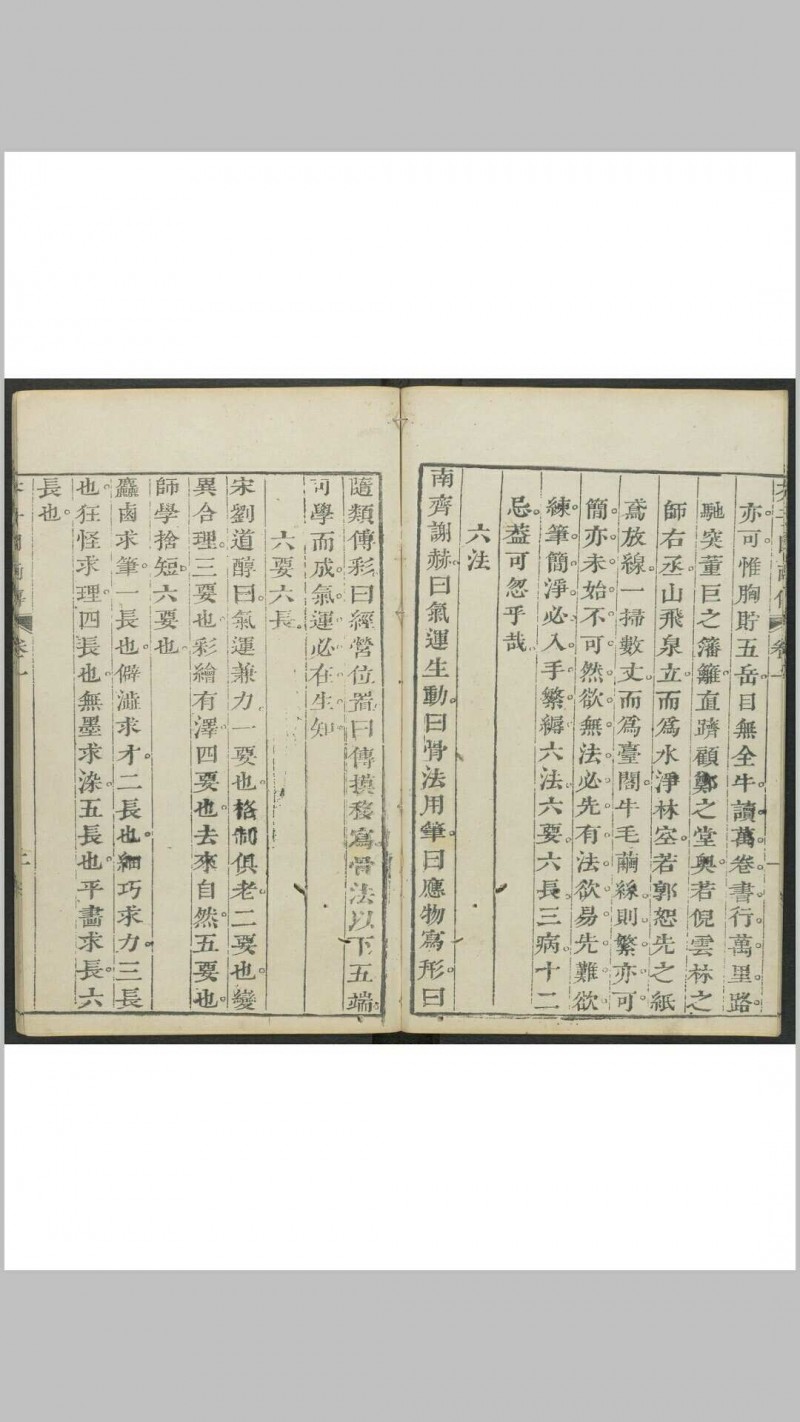 亦可惟胸貯五岳目無全牛讀萬卷書行萬里路
馳突董巨之籓籬直躋顧鄭之堂奧若倪雲林之
師右丞山飛泉立而爲水淨林空若郭恕先之紙
鳶放線一掃數丈而爲臺閣牛毛繭絲則繁亦可
簡亦未始不可然欲無法必先有法欲易先難欲
練筆簡淨必入手繁縟六法六要六長三病十二
忌葢可忽乎哉
六法
南齊謝赫曰氣運生動曰骨法用筆曰應物寫形曰
隨類傅彩曰經營位置曰傳摸移寫骨法以下五端
可學而成氣運必在生知
六要六長
宋劉道醇曰氣運兼力一要也格制俱老二要也變
異合理三要也彩繪有澤四要也去來自然五要也
師學捨短六要也
麤鹵求筆一長也僻澁求才二長也細巧求力三長
也狂怪求理四長也無墨求染五長也平畫求長六
長也
卷一